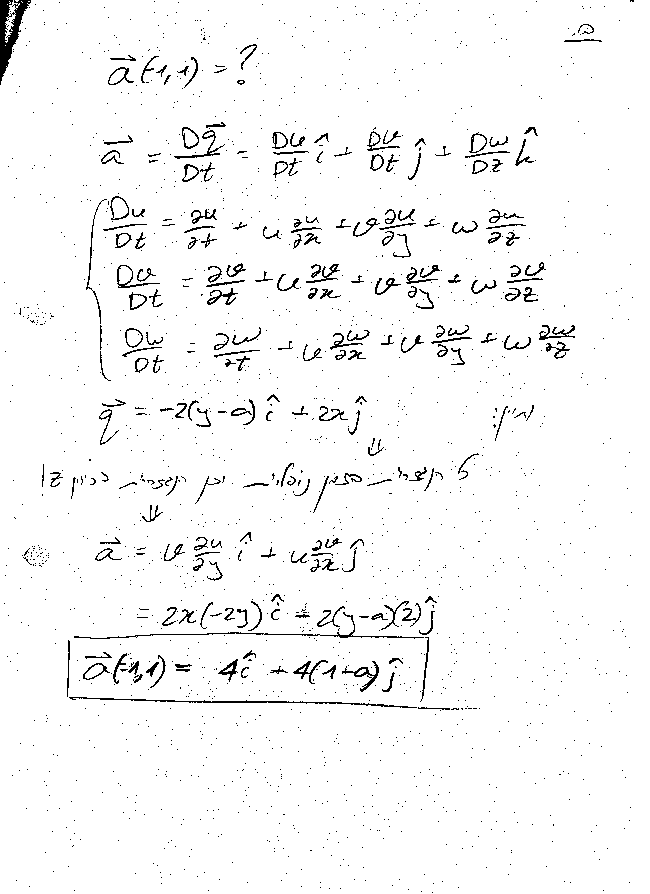 ה.
a⃗(-1,1) = ?
a⃗ = Dq⃗/Dt = Du/Dt î + Dv/Dt ĵ + Dw/Dz k̂
Du/Dt = ∂u/∂t + u ∂u/∂x + v ∂u/∂y + w ∂u/∂z
Dv/Dt = ∂v/∂t + u ∂v/∂x + v ∂v/∂y + w ∂v/∂z
Dw/Dt = ∂w/∂t + u ∂w/∂x + v ∂w/∂y + w ∂w/∂z
q⃗ = -2(y-a) î + 2x ĵ
⇓
z
⇓
a⃗ = v ∂u/∂y î + u ∂v/∂x ĵ
= 2x(-2y) î - 2(y-a)(2) ĵ
a⃗(-1,1) = 4î + 4(1+a) ĵ